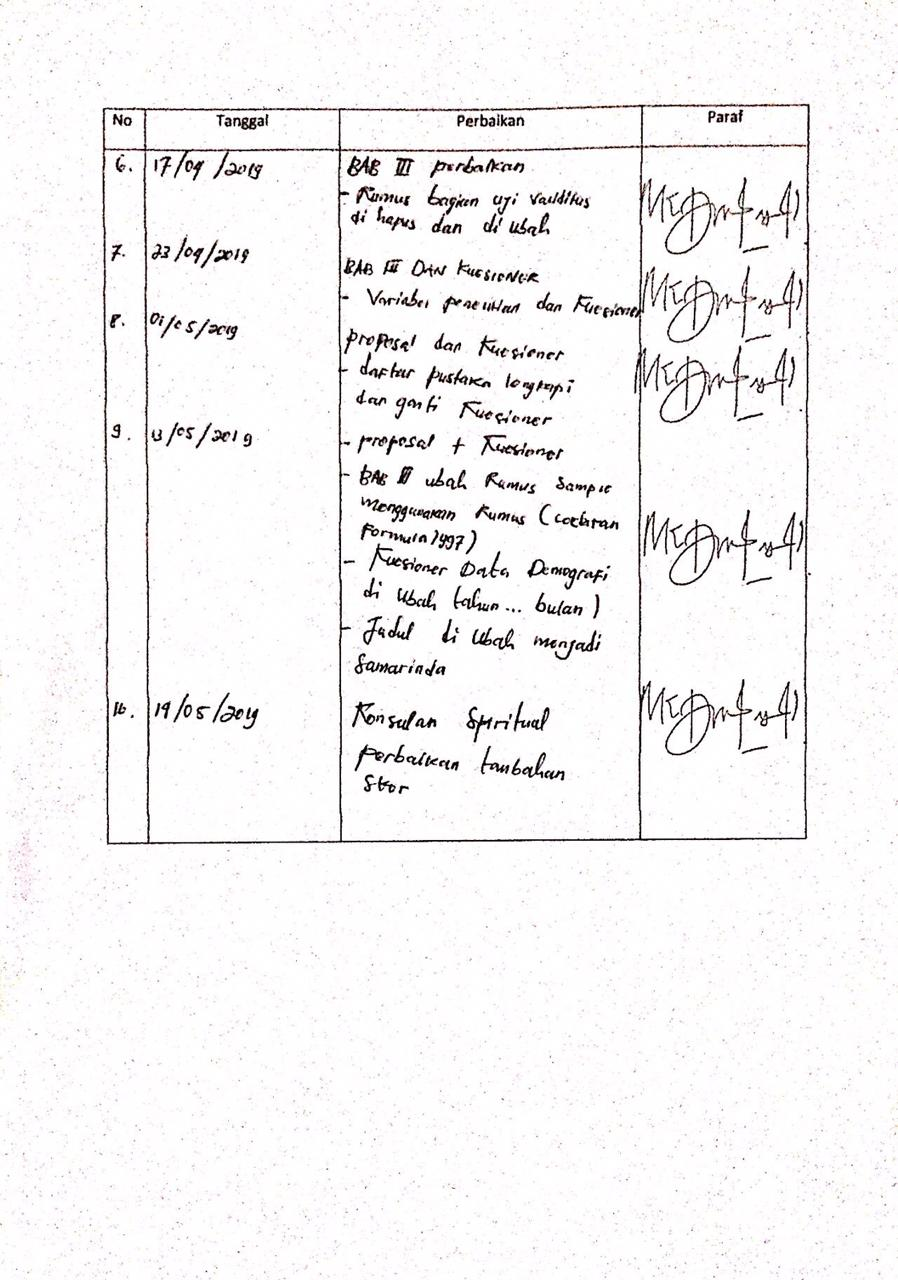 No Tanggal Perbaikan Paraf
6. 17/04/2019 BAB III perbaikan
- Rumus bagian uji validitas
di hapus dan di ubah
7. 23/04/2019
BAB III DAN KUESIONER
- Variabel penelitian dan Kuesioner
8. 01/05/2019
proposal dan Kuesioner
- daftar pustaka lengkapi
dan ganti Kuesioner
9. 13/05/2019 - proposal + Kuesioner
- BAB III ubah Rumus Sample
menggunakan Rumus (cochran
Formula 1997)
- Kuesioner Data Demografi
di ubah tahun... bulan)
- Judul di ubah menjadi
Samarinda
10. 14/05/2019 Konsulan Spiritual
perbaikan tambahan
Skor